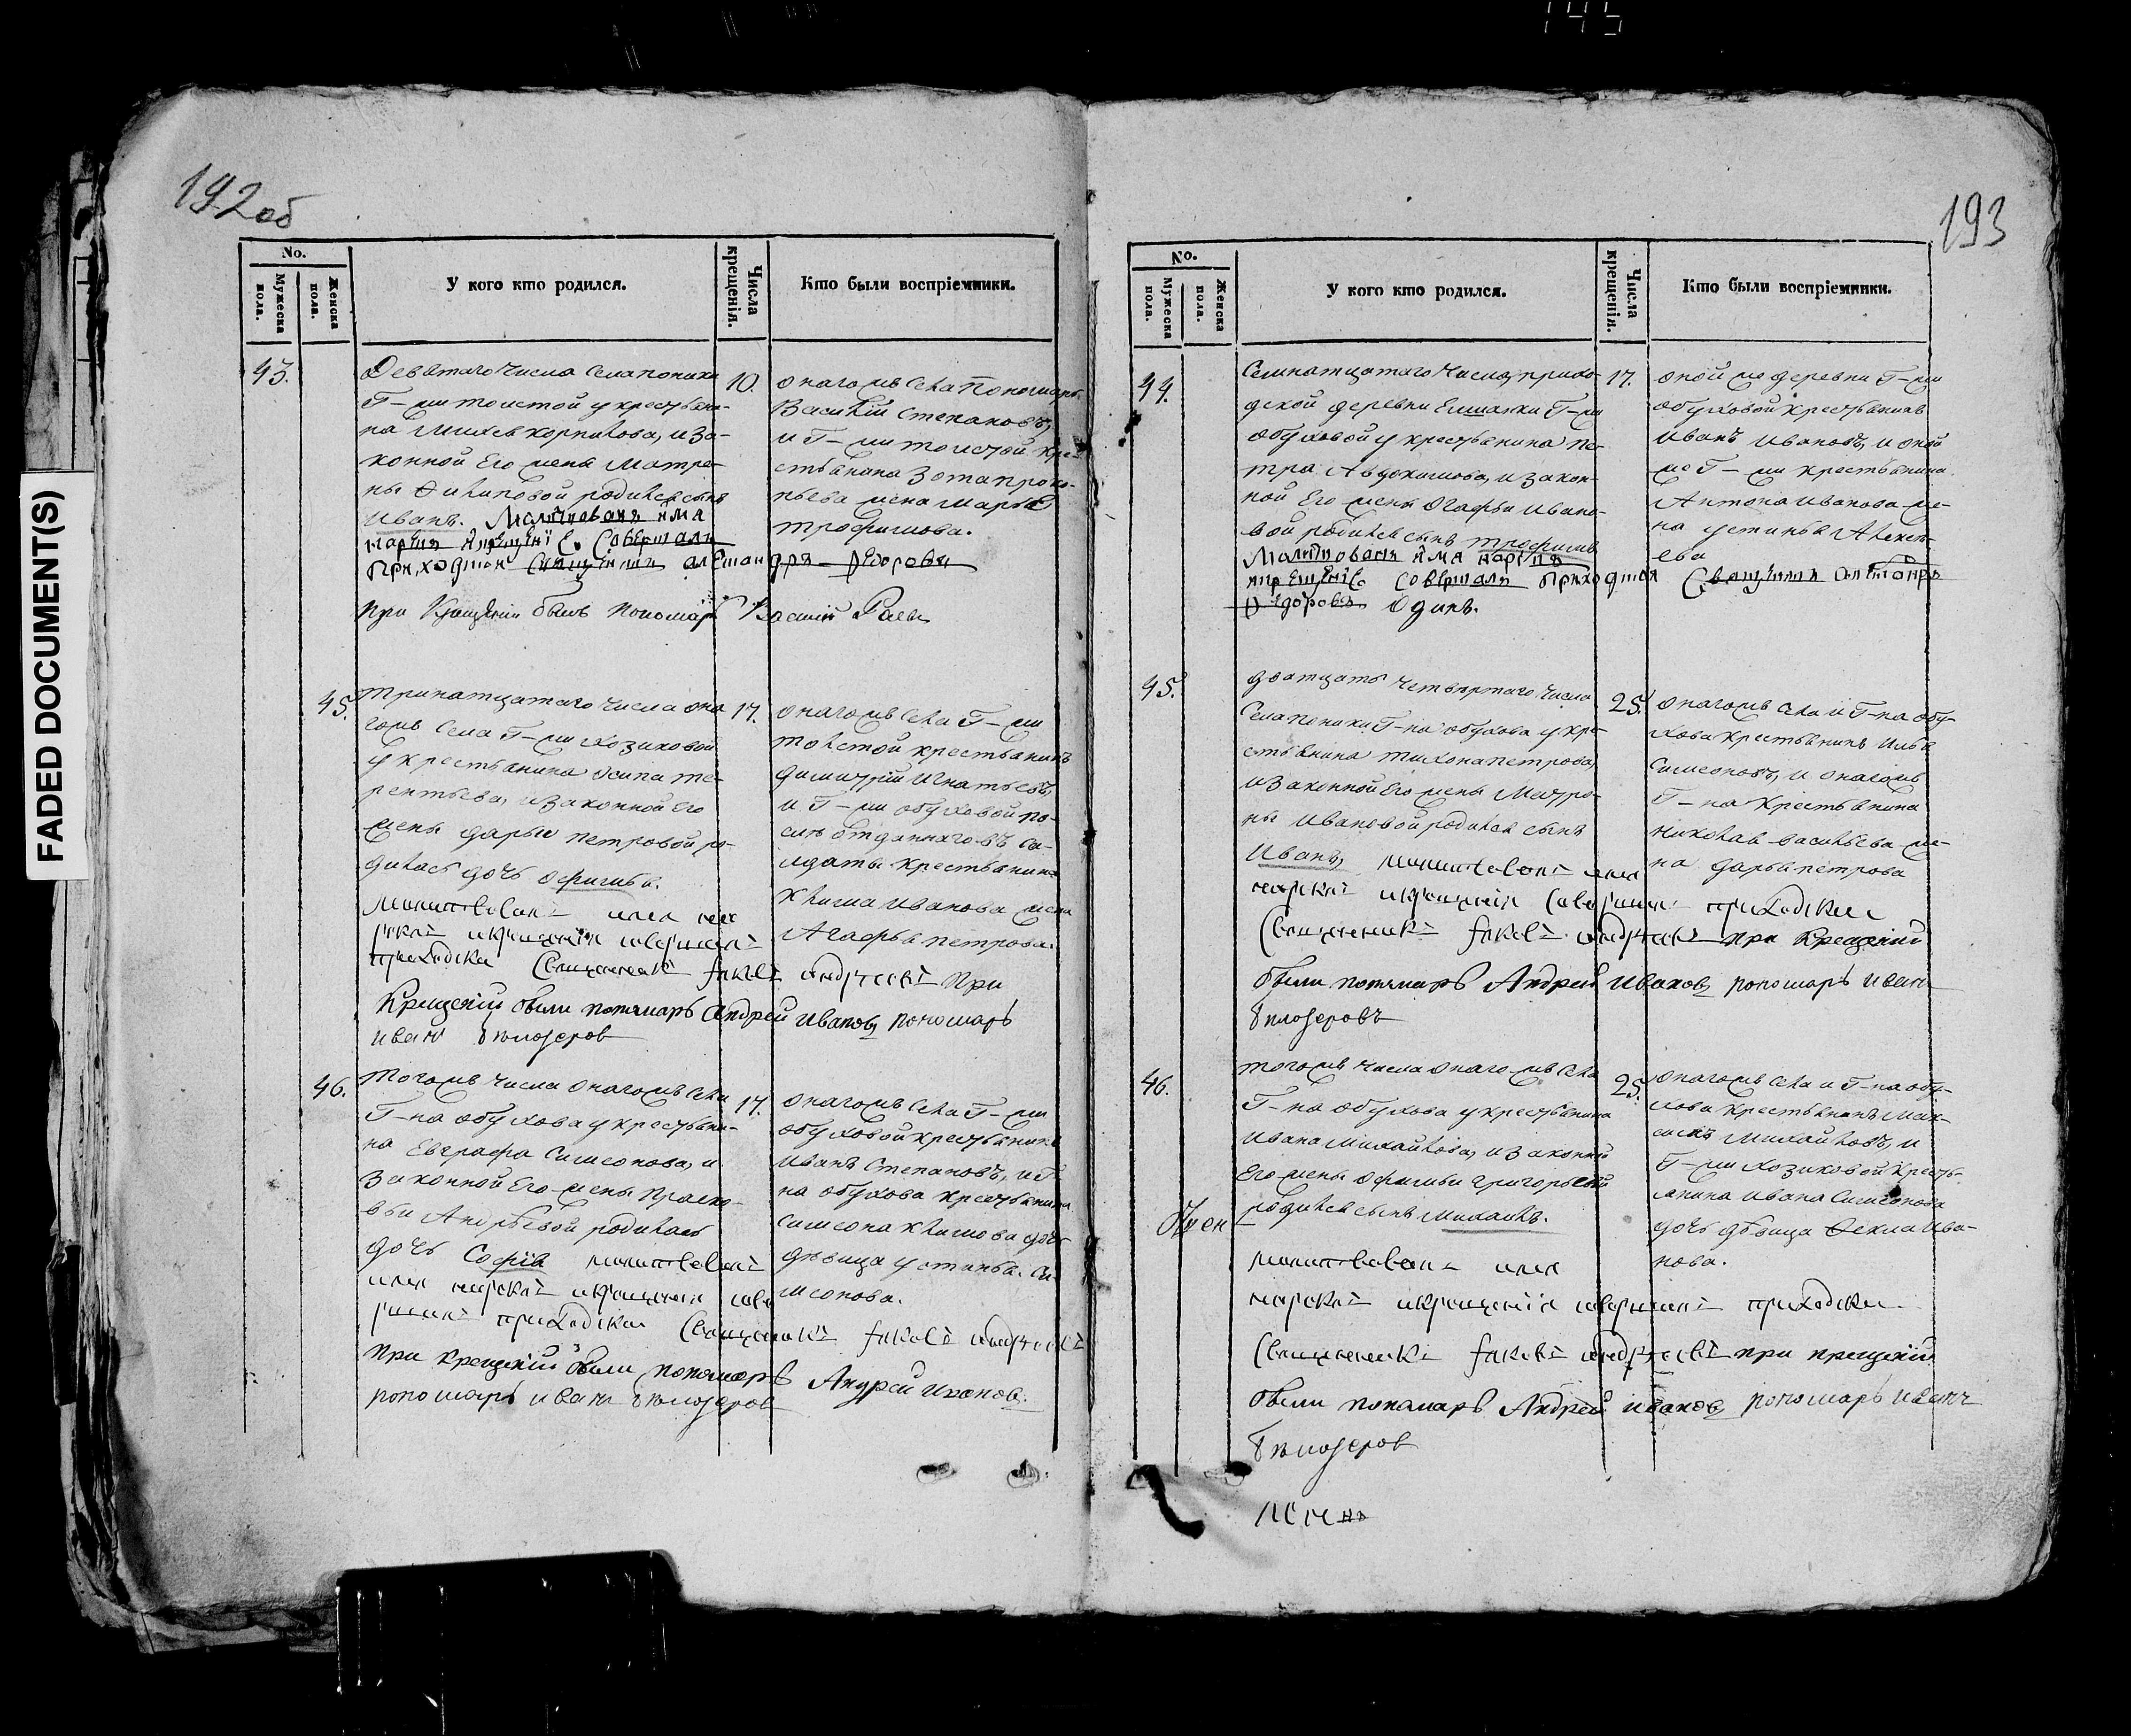 145
FADED DOCUMENT(S)
192 об
No.
Мужеска пола.
Женска пола.
У кого кто родился.
Числа крещенія.
Кто были воспріемники.
43.
Девятаго Числа Села поники
Г-жи толстой у крестьяни-
на михея корнилова, и за-
конной Его жены Матре-
ны Филиповой родился сынъ
Иванъ. Молитвовалъ има
нарпя Крещеніе Совершалъ
Приходскои Священникъ
При Крещеніи былъ пономарь Василій
10.
онагожъ села Пономарь
Василій Степановъ,
и Г-жи толстой кре-
стьянина Зота проко-
пьева жена марья
трофимова.
45.
тринатцатаго Числа она
гожъ Села Г-жи
у крестьянина осипа те-
рентьева, и законной Его
жены дарьи петровой ро-
дилась дочь офимья.
молитвовалъ имя нар
крещеніе совершалъ
приходски Священникъ при
Крещеніи были пономарь Андрей Ивановъ пономарь
иванъ Белозеров
17.
онагожъ села Г-жи
толстой крестьянинъ
димитрій Игнатьевъ,
и Г-жи обуховой по-
слѣ отданнаго въ со-
лдаты крестьянина
Клима Иванова жена
Агафья петрова.
46.
тогожъ числа онагожъ села
Г-на обухова у крестьяни-
на Евграфа Симеонова, и
законной Его жены праско-
вьи Андрѣевой родилась
дочь Софія молитвовалъ
имя нарекъ крещеніе сове
ршалъ приходски Священникъ
при крещеніи были пономарь Андрей Ивановъ
пономарь иванъ Белозеров
17.
онагожъ села Г-жи
обуховой крестьянинъ
Иванъ Степановъ, и Г-
на обухова крестьянина
симеона климова дочь
дѣвица устинья Си-
меонова.
193
No.
Мужеска пола.
Женска пола.
У кого кто родился.
Числа крещенія.
Кто были воспріемники.
44.
Семнатцатаго Числа прихо-
дской деревни Г-жи
обуховой у крестьянина пе-
тра Авдокимова, и закон-
ной Его жены огафьи Ивано-
вой родился сынъ трофимъ
Молитвовалъ има
Крещеніе Совершалъ Приходскои Священникъ
Одинъ.
17.
оной же деревни Г-жи
обуховой крестьянинъ
Иванъ Ивановъ, и оной
же Г-жи крестьянина
Антона Иванова же-
на устинья Алексѣ-
ева
45.
дватцать четвертаго числа
Села поники Г-на обухова у кре-
стьянина тихона петрова,
и законной Его жены Матро-
ны Ивановой родился сынъ
Иванъ, молитвовалъ имя
нарекъ крещеніе совершалъ приходски
Священникъ при Крещеніи
были пономарь Андрей Ивановъ пономарь иван
Белозеровъ
25.
онагожъ села и Г-на обу-
хова крестьянинъ Илья
Симеоновъ, и онагожъ
Г-на Крестьянина
николая васильева же-
на дарья петрова
46.
тогожъ числа онагожъ села
Г-на обухова у крестьянина
Ивана Михайлова, и законной
Его жены офимьи григорьевой
родился сынъ михаилъ.
молитвовалъ имя
нарекъ крещеніе совершалъ приходски
Священникъ при крещеніи
были пономарь Андрей ивановъ пономарь иванъ
Белозеров
25.
онагожъ села и Г-на обу-
хова крестьянинъ мак-
симъ Михайловъ, и
Г-жи Крестья-
янина Ивана Симеонова
дочь дѣвица Фекла Ива-
нова.